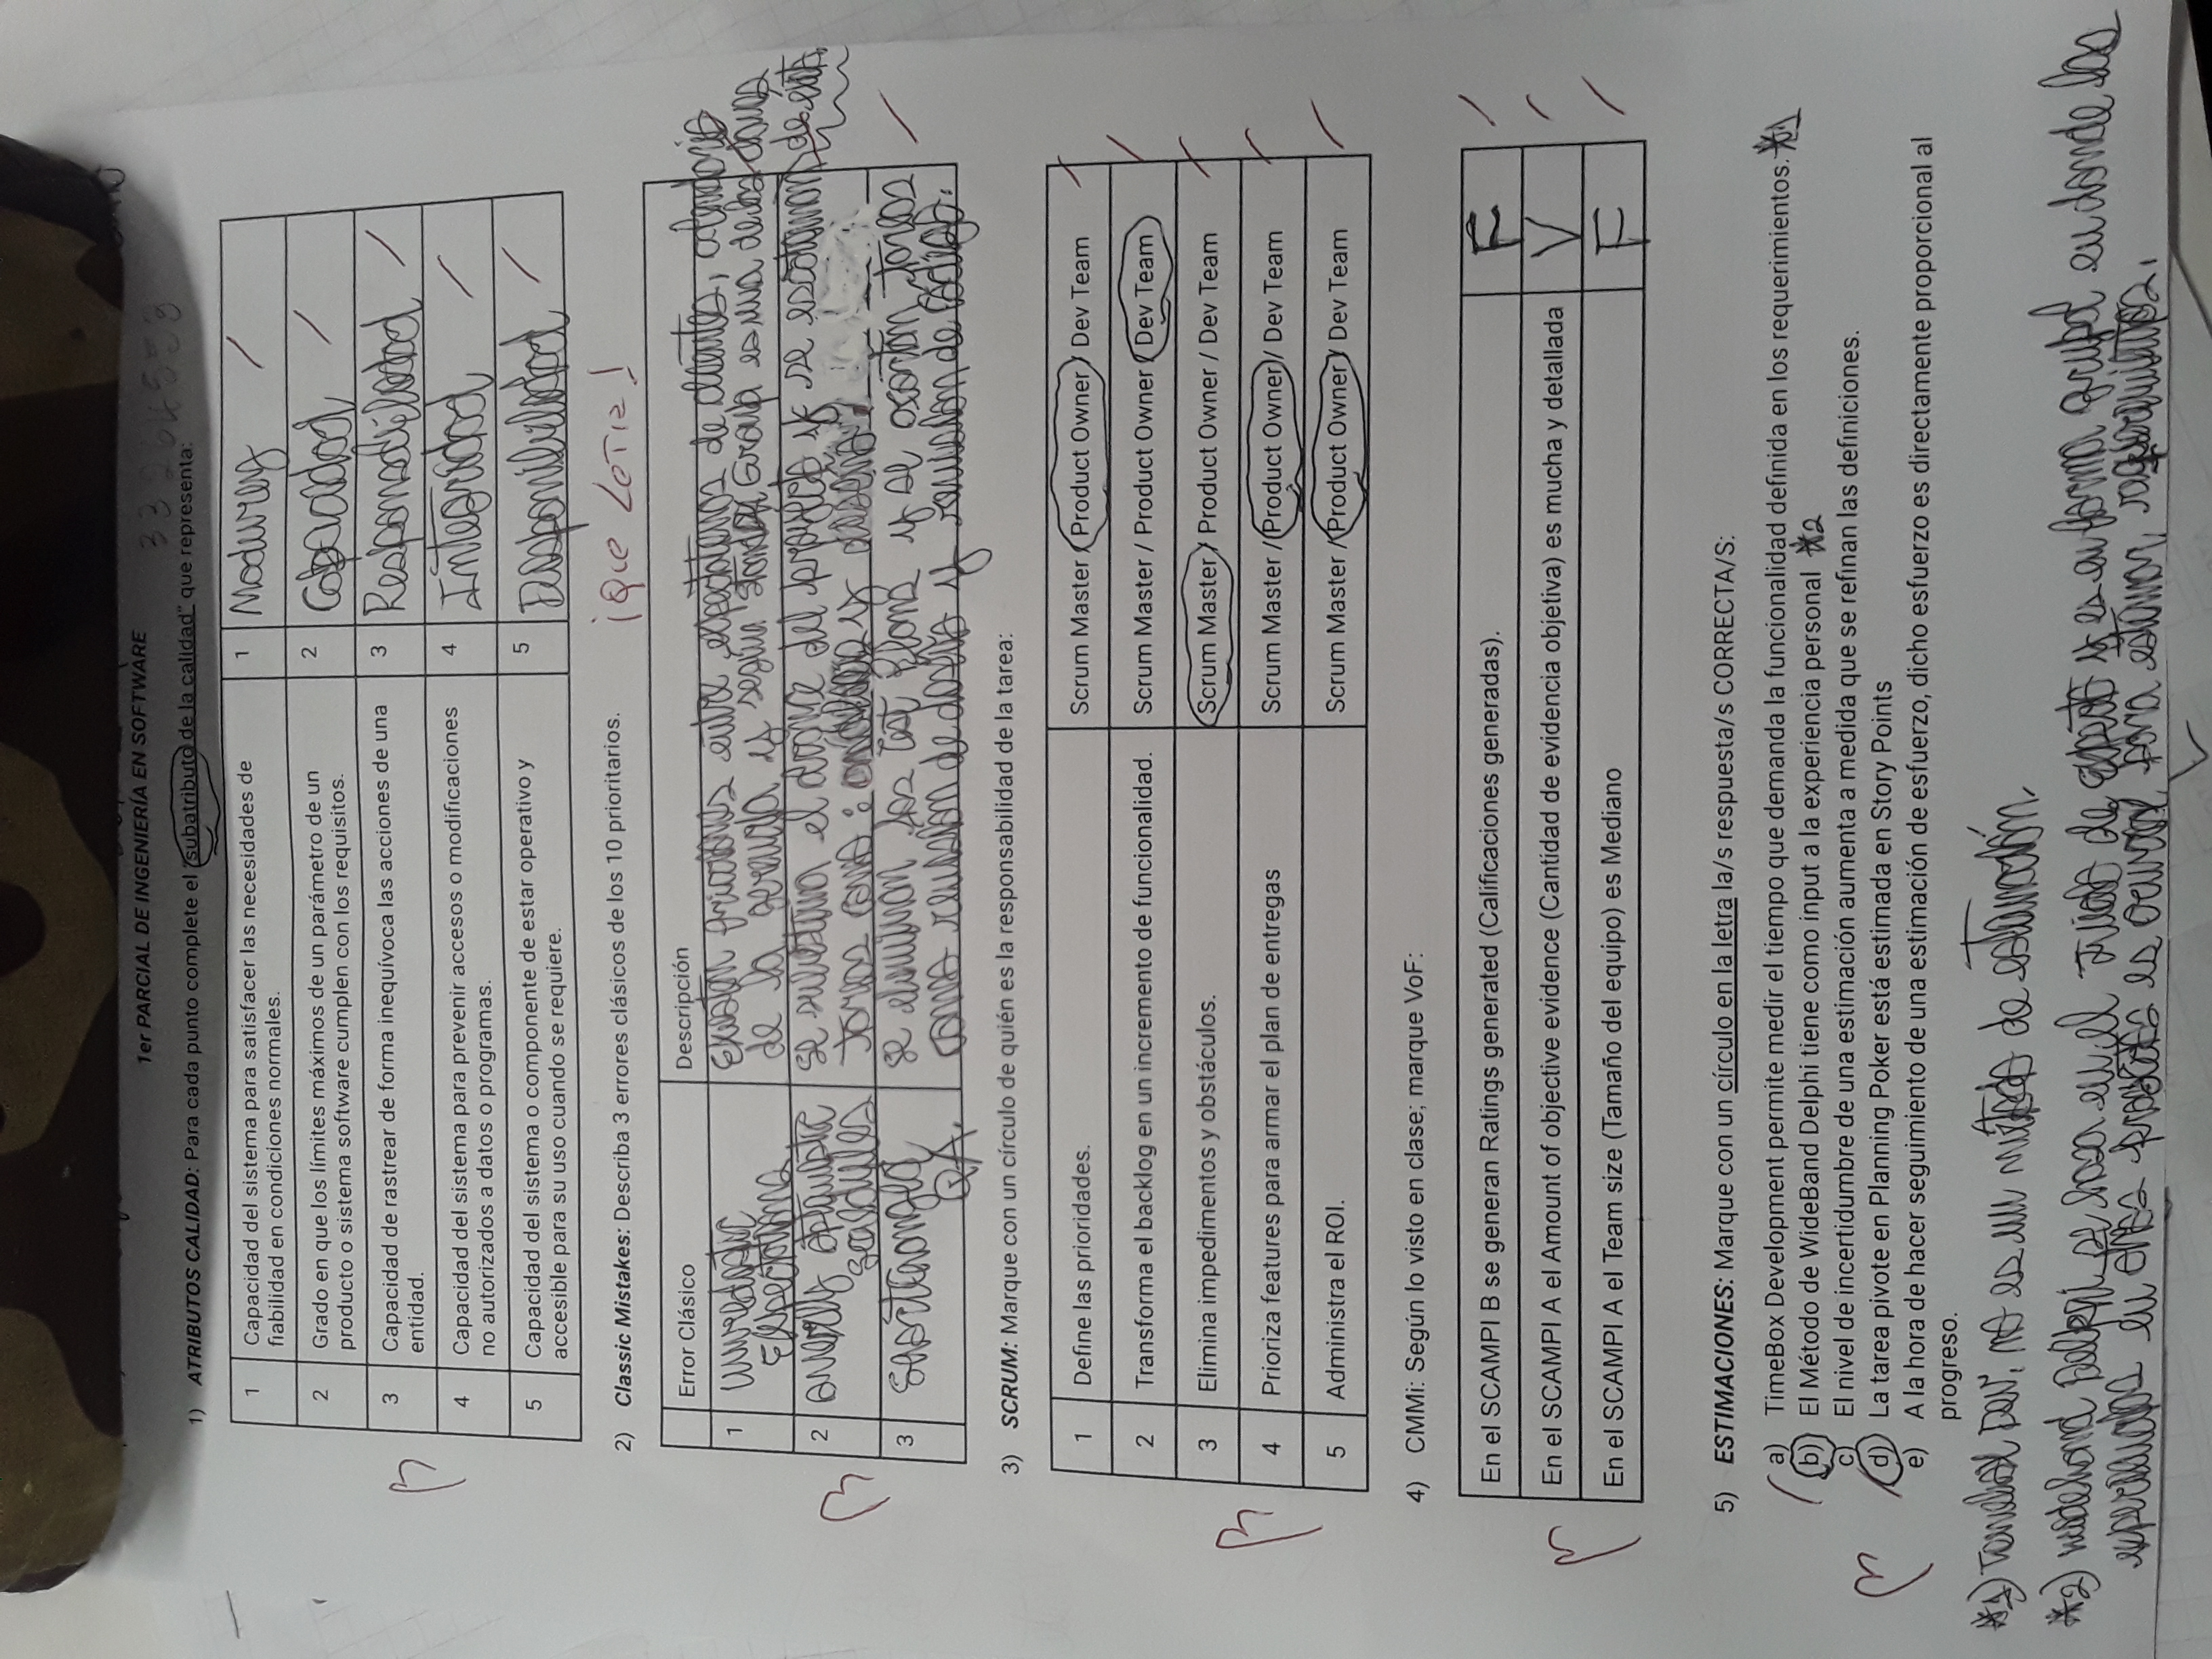 1er PARCIAL DE INGENIERÍA EN SOFTWARE
1) ATRIBUTOS CALIDAD: Para cada punto complete el "subatributo de la calidad" que representa:
1 Capacidad del sistema para satisfacer las necesidades de fiabilidad en condiciones normales. 1 Madurez
2 Grado en que los límites máximos de un parámetro de un producto o sistema software cumplen con los requisitos. 2 Capacidad
3 Capacidad de rastrear de forma inequívoca las acciones de una entidad. 3 Responsabilidad
4 Capacidad del sistema para prevenir accesos o modificaciones no autorizados a datos o programas. 4 Integridad
5 Capacidad del sistema o componente de estar operativo y accesible para su uso cuando se requiere. 5 Disponibilidad
2) Classic Mistakes: Describa 3 errores clásicos de los 10 prioritarios. ¡QUE LETRA!
Error Clásico Descripción
1 Unrealistic Expectations Existen fricciones entre expectativas de clientes,
de la gerencia y según Group es una de las claves de éxito
2 overly optimistic schedules se subestima el alcance del proyecto y se
tareas como: análisis y diseño.
3 QA. se eliminan los test plans y se acortan tareas
como revisión de diseño y revisión de código.
3) SCRUM: Marque con un círculo de quién es la responsabilidad de la tarea:
1 Define las prioridades. Scrum Master / Product Owner / Dev Team
2 Transforma el backlog en un incremento de funcionalidad. Scrum Master / Product Owner / Dev Team
3 Elimina impedimentos y obstáculos. Scrum Master / Product Owner / Dev Team
4 Prioriza features para armar el plan de entregas Scrum Master / Product Owner / Dev Team
5 Administra el ROI. Scrum Master / Product Owner / Dev Team
4) CMMi: Según lo visto en clase; marque VoF:
En el SCAMPI B se generan Ratings generated (Calificaciones generadas). F
En el SCAMPI A el Amount of objective evidence (Cantidad de evidencia objetiva) es mucha y detallada V
En el SCAMPI A el Team size (Tamaño del equipo) es Mediano F
5) ESTIMACIONES: Marque con un círculo en la letra la/s respuesta/s CORRECTA/S:
a) TimeBox Development permite medir el tiempo que demanda la funcionalidad definida en los requerimientos. *1
b) El Método de WideBand Delphi tiene como input a la experiencia personal *2
c) El nivel de incertidumbre de una estimación aumenta a medida que se refinan las definiciones.
d) La tarea pivote en Planning Poker está estimada en Story Points
e) A la hora de hacer seguimiento de una estimación de esfuerzo, dicho esfuerzo es directamente proporcional al
progreso.
*1) Timebox Dev. no es un método de estimación.
*2) Wideband Delphi se basa en el juicio de experto y es en forma grupal en donde las
experiencias en otros proyectos es para estimar